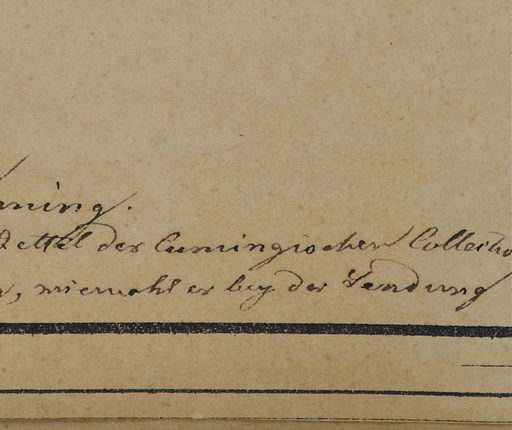 ming.
Zettel der Cumingischen Collectio
, wiewohl er bey der Sendung